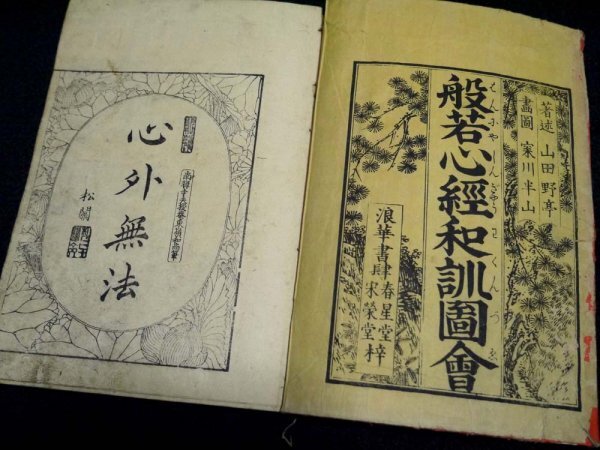 著述 山田野亭
畫圖 寀川半山
般若心經和訓圖會
はんにやしんぎやうわくんづゑ
浪華書肆 春星堂
宋榮堂 梓
心外無法
松關